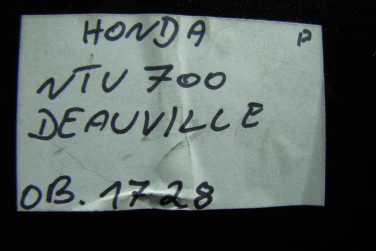 HONDA P
NTV 700
DEAUVILLE
OB. 1728